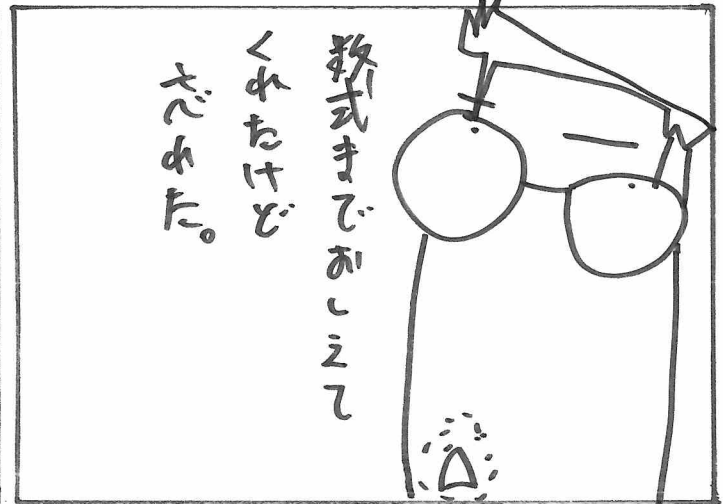 数式までおしえて
くれたけど
忘れた。